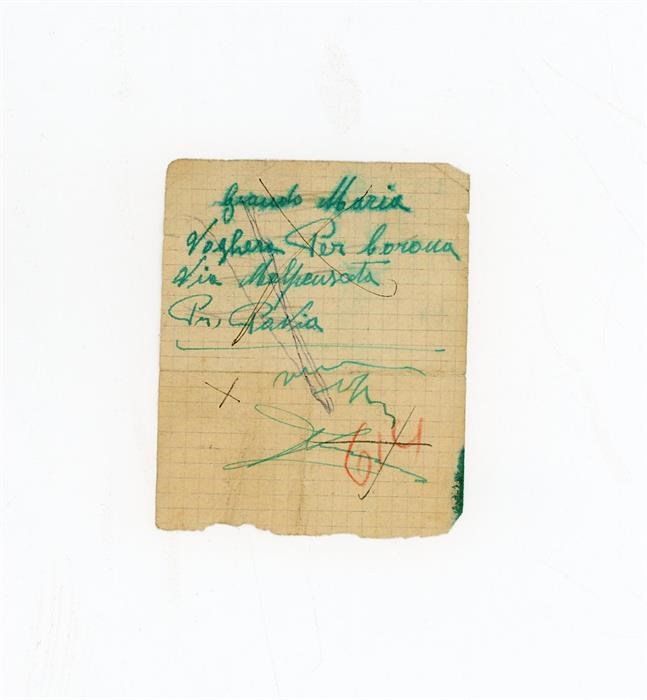 Grando Maria
Voghera Per Corona
Via Malpensata
Pr. Pavia
614